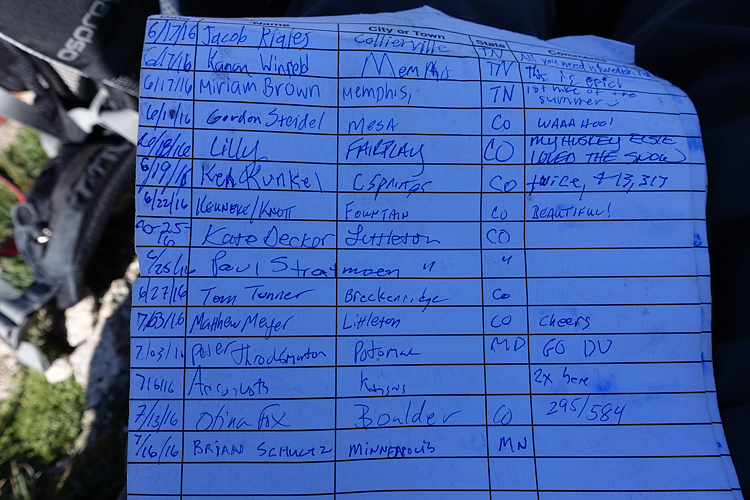 osprey
Name City or Town State
6/17/16 Jacob Collierville TN All you need is
6/17/16 Kanan Winfeld Memphis TN This is
6/17/16 Miriam Brown Memphis, TN 1st hike of the
summer
Gordon Steidel Mesa CO WAAAHOO!
6/18/16 Lilly FAIRPLAY CO MY HUSKEY ELSIE
LOVED THE SNOW
6/19/16 Ken Runkel C Springs CO twice, 13,317
6/22/16 KENNEKE/KNOTT FOUNTAIN CO BEAUTIFUL!
6-25-16 Kate Decker Littleton CO
6/25/16 Paul " "
6/27/16 Tom Tanner Breckenridge CO
7/03/16 Matthew Meyer Littleton CO cheers
7/03/16 Throckmorton Potomac MD GO DU
7/6/16 Kansas 2x here
7/13/16 Otina Fox Boulder CO 295/584
7/16/16 BRIAN SCHULTZ MINNEAPOLIS MN